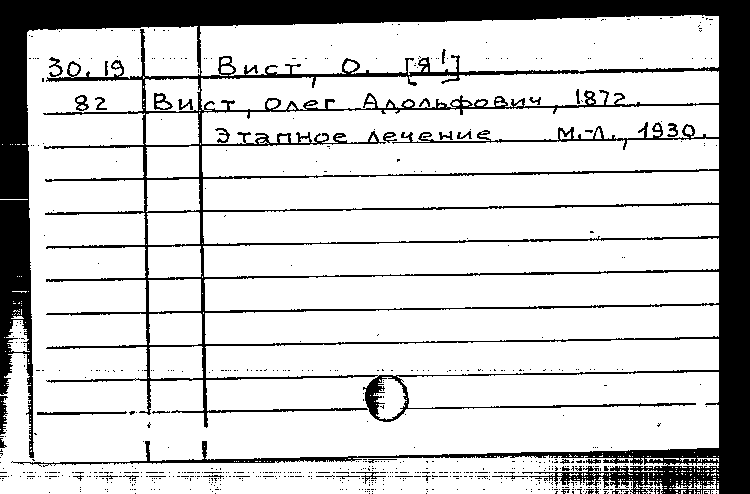 30.19 Вист, О. [Я!]
82 Вист, Олег Адольфович, 1872.
Этапное лечение М.-Л., 1930.